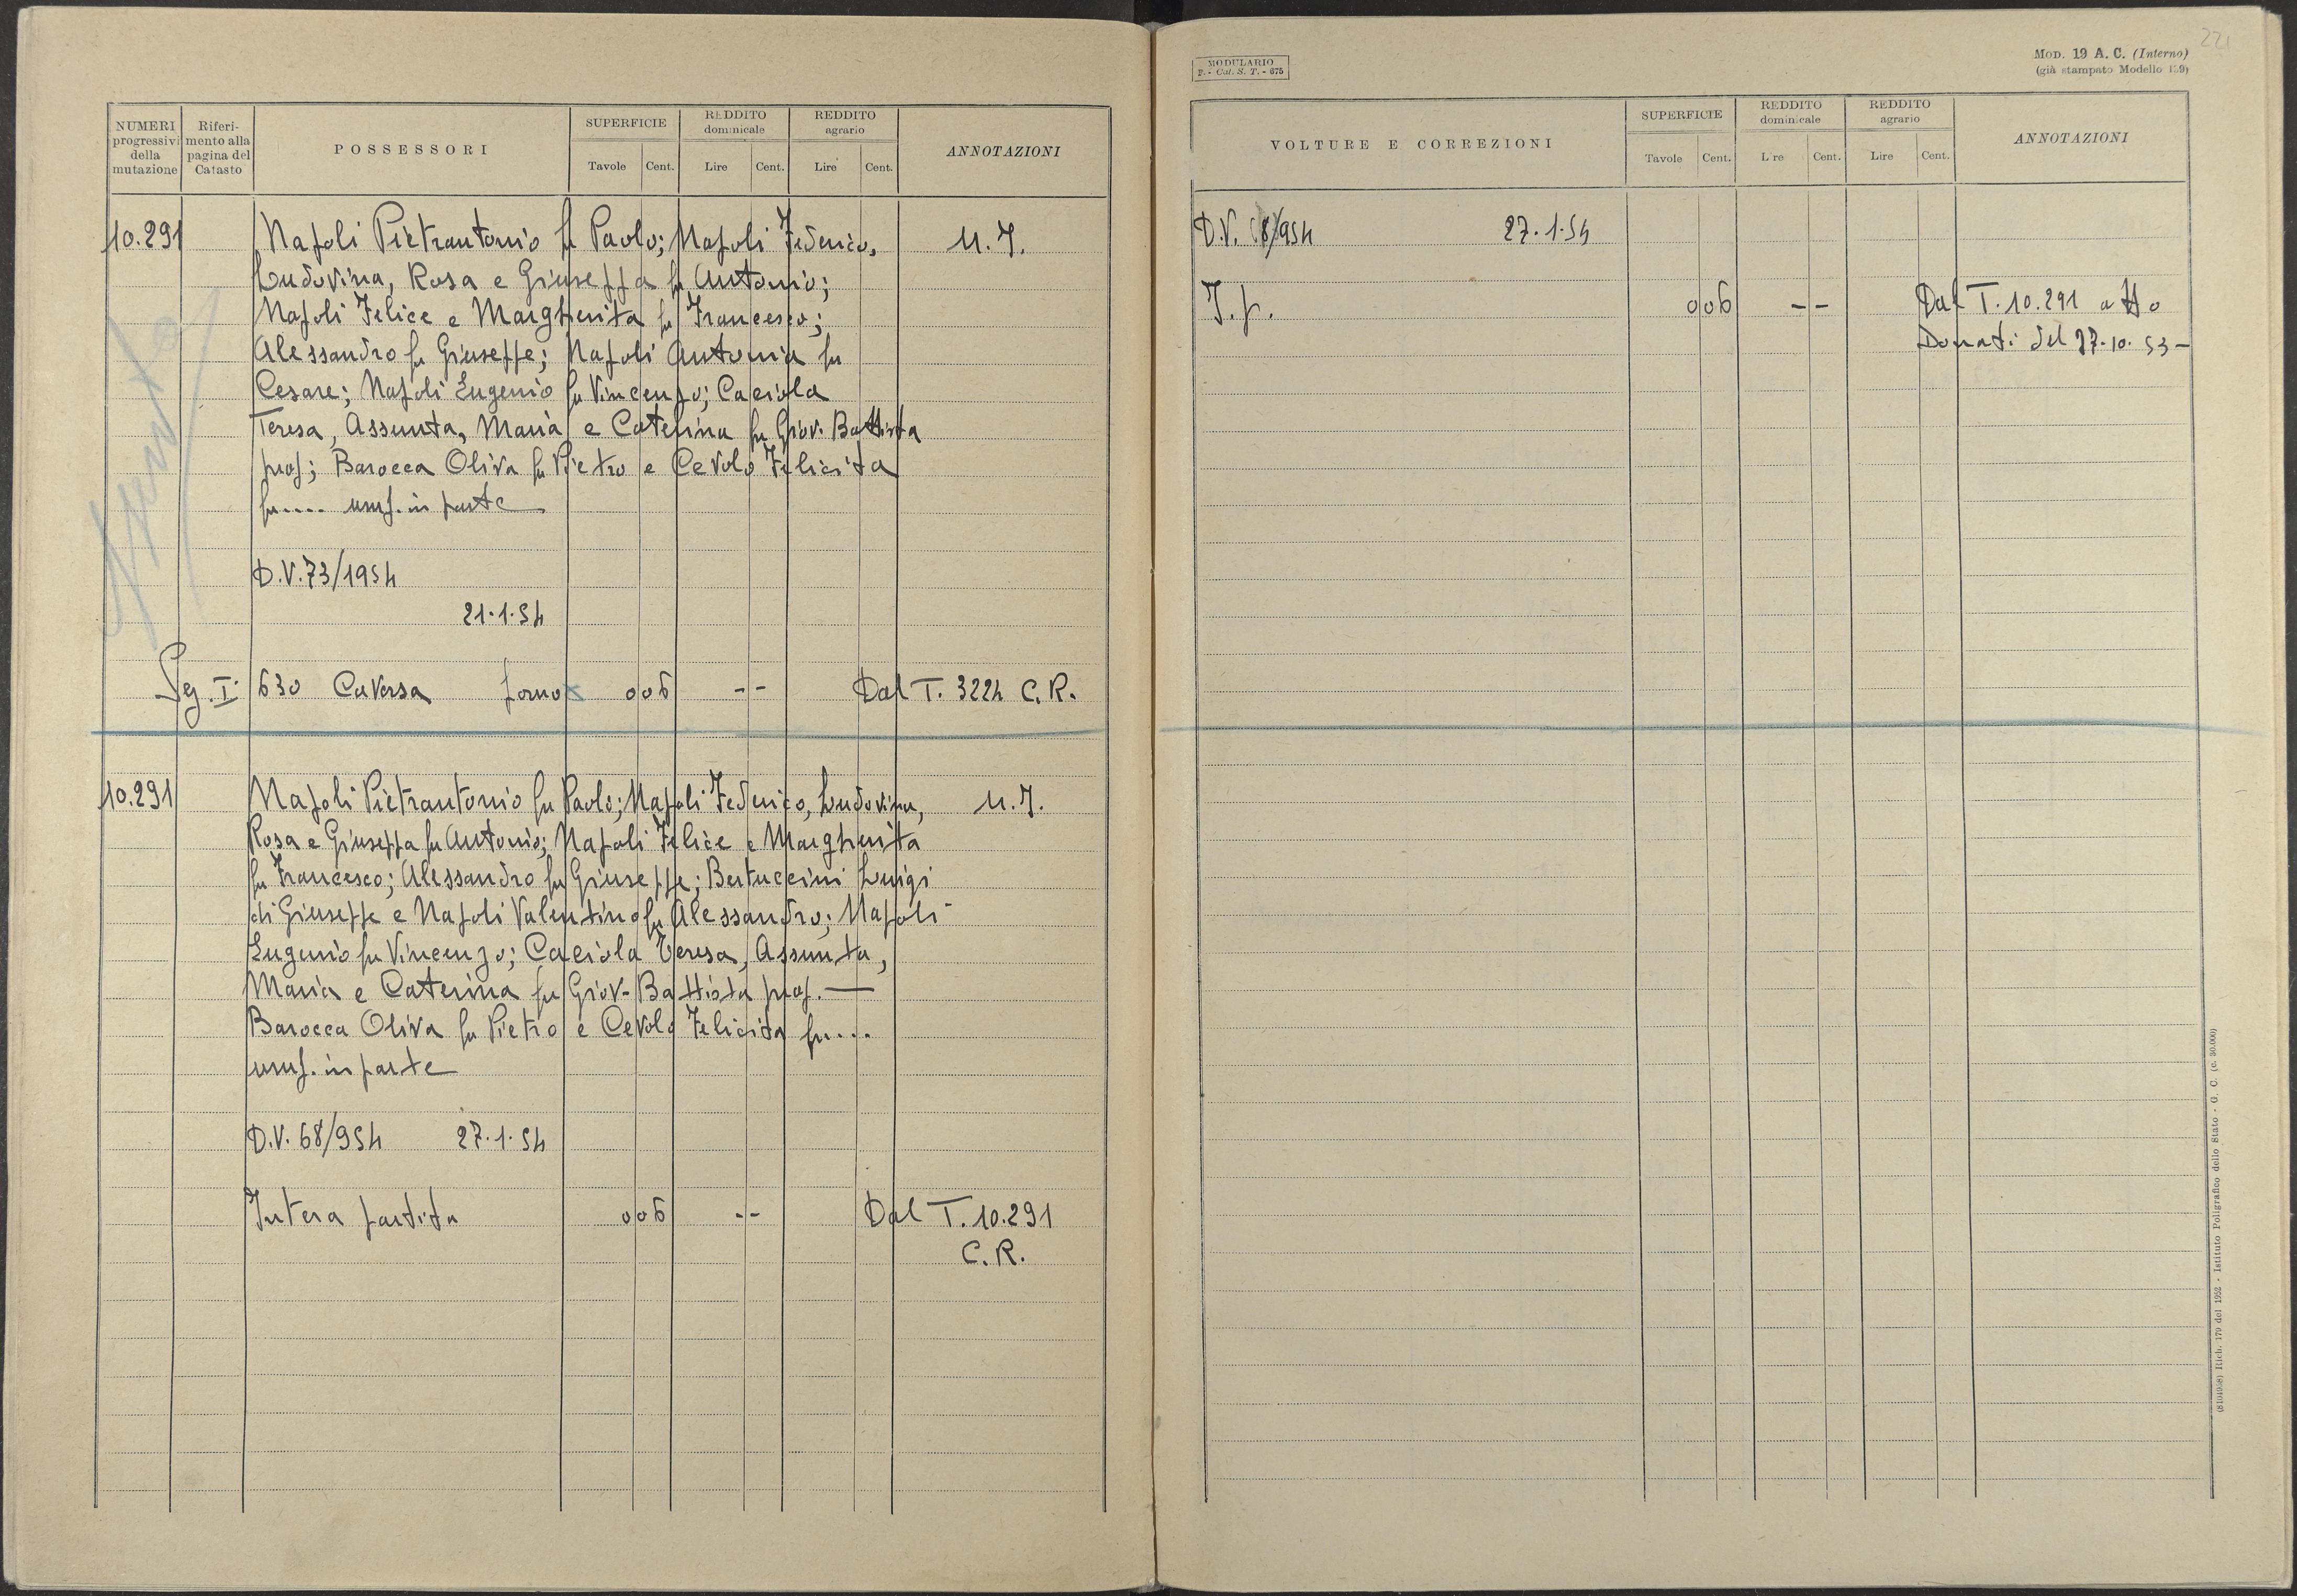 NUMERI progressivi della mutazione
Riferimento alla pagina del Catasto
POSSESSORI
SUPERFICIE
Tavole Cent.
REDDITO dominicale
Lire Cent.
REDDITO agrario
Lire Cent.
ANNOTAZIONI
10.291 Napoli Pietrantonio fu Paolo; Napoli Federico, U.I.
Ludovina, Rosa e Giuseppa fu Antonio;
Napoli Felice e Margherita fu Francesco;
Alessandro fu Giuseppe; Napoli Antonia fu
Cesare; Napoli Eugenio fu Vincenzo; Caciola
Teresa, Assunta, Maria e Caterina fu Giov. Battista
prop; Barocca Oliva fu Pietro e Cevolo Felicita
fu.... usuf. in parte
D.V. 73/1954
21.1.54
Sez. I 630 Caversa forno 006 -- Dal T. 3224 C.R.
10.291 Napoli Pietrantonio fu Paolo; Napoli Federico, Ludovina, U.I.
Rosa e Giuseppa fu Antonio; Napoli Felice e Margherita
fu Francesco; Alessandro fu Giuseppe; Bertuccini Luigi
di Giuseppe e Napoli Valentino fu Alessandro; Napoli
Eugenio fu Vincenzo; Caciola Teresa, Assunta,
Maria e Caterina fu Giov-Battista prop. —
Barocca Oliva fu Pietro e Cevolo Felicita fu...
usuf. in parte
D.V. 68/954 27.1.54
Intera partita 006 -- Dal T. 10.291
C.R.
MODULARIO
F. - Cat. S. T. - 675
MOD. 19 A. C. (Interno)
(già stampato Modello 139)
221
VOLTURE E CORREZIONI
SUPERFICIE
Tavole Cent.
REDDITO dominicale
Lire Cent.
REDDITO agrario
Lire Cent.
ANNOTAZIONI
D.V. 68/954 27.1.54
I.p. 006 -- Dal T. 10.291 atto
Donati del 27.10.53-
(8101958) Rich. 179 del 1952 - Istituto Poligrafico dello Stato - G. C. (c. 30.000)